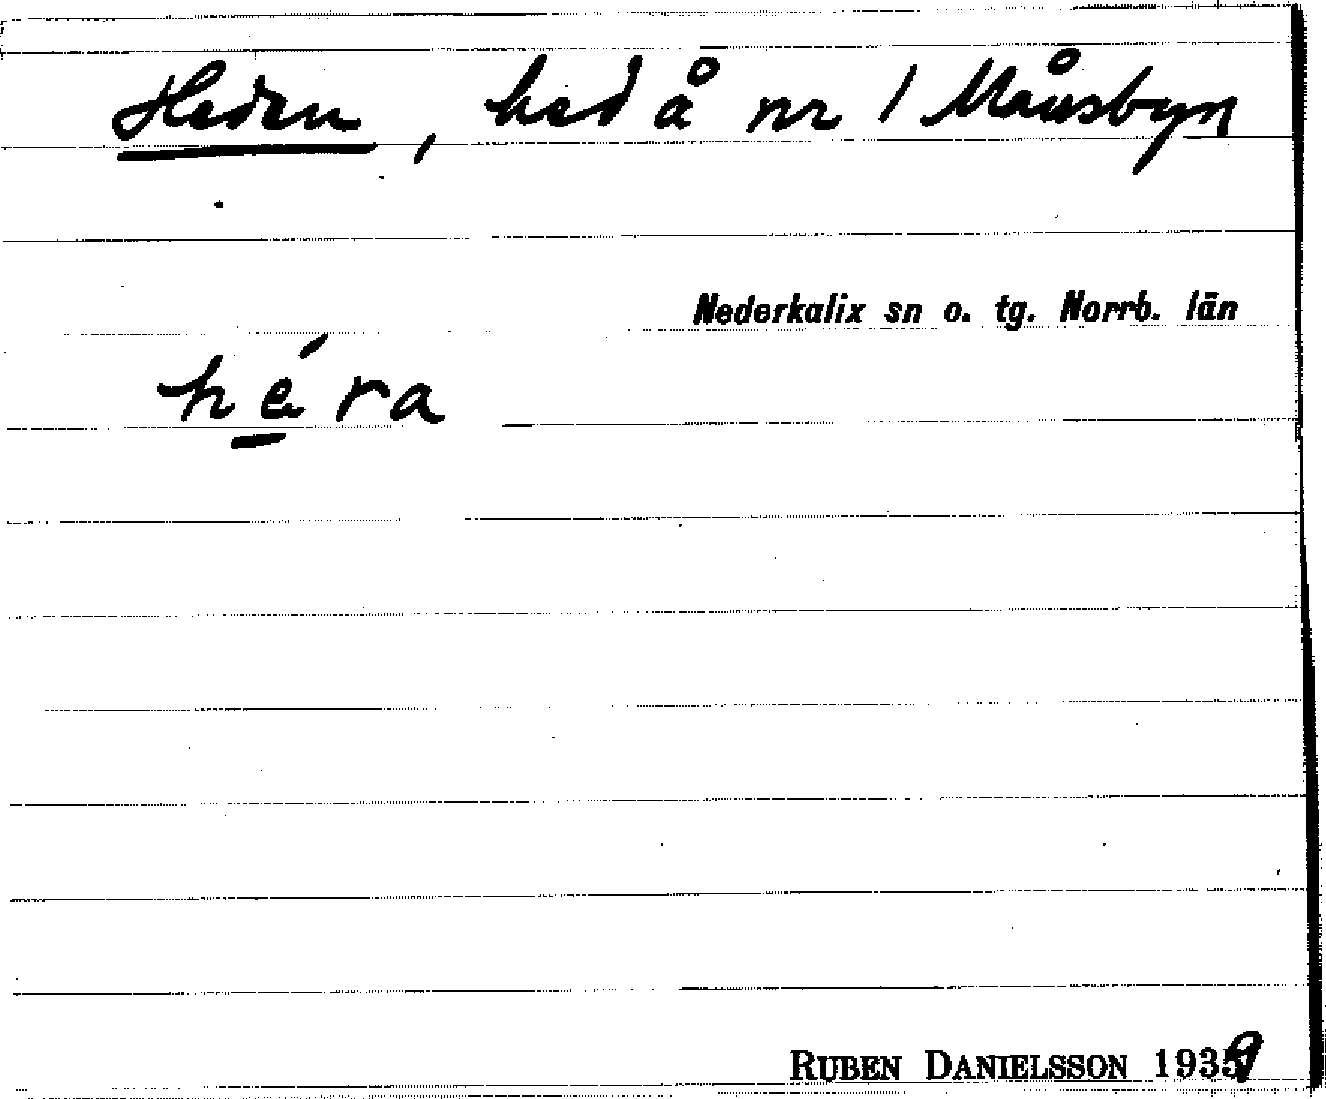 Heden, hed å nr 1 Månsbyn
Nederkalix sn o. tg. Norrb. län
héra
RUBEN DANIELSSON 1939